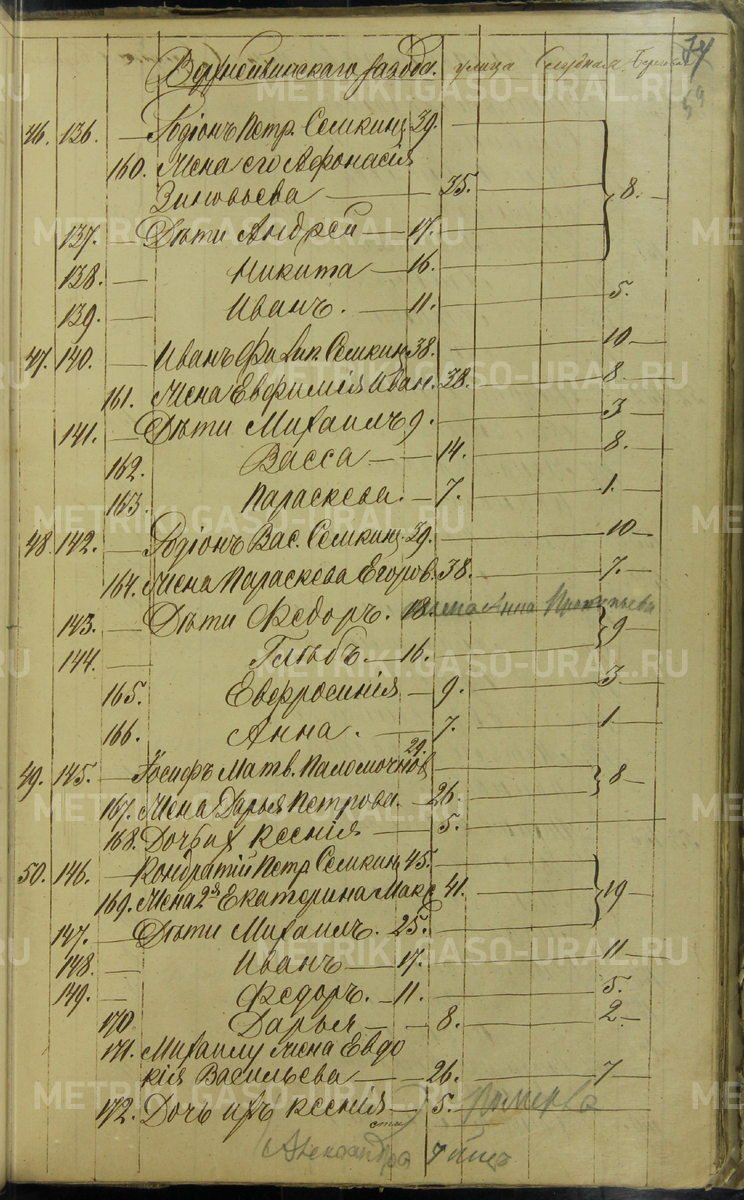 74
59
улица Слудная
46. 136. — Родіонъ Петр. Семкинъ 39.
160. Жена его Афонасія
Зиновьева — 35. 8.
137. — Дѣти Андрей — 17.
138. — Никита — 16.
139. — Иванъ. — 11. 5.
47. 140. — Иванъ Семкинъ 38. 10
161. Жена Евфимія Иван. 38. 8
141. — Дѣти Михаилъ 9. 3
162. Васса — 14. 8.
163. Параскева. — 7. 1.
48. 142. — Родіонъ Вас. Семкинъ 39. 10
164. Жена Параскева Егоров. 38. 7.
143. — Дѣти Федоръ. 18. жена Анна
144. — Глѣбъ. — 16. 9
165. Евфросинія — 9. 3
166. Анна. — 7. 1
49. 145. — Іосифъ Матв. Паломочнов 29.
167. Жена Дарья Петрова. — 26. 8
168. Дочь их Ксенія — 5.
50. 146. — Кондратій Петр. Семкинъ 45.
169. Жена 2я Екатерина Макс 41. 19
147. — Дѣти Михаилъ. 25.
148. — Иванъ — 17. 11
149. — Федоръ. — 11. 5.
170 Дарья — 8. 2.
171. Михаилу жена Евдо
кія Васильева — 26. 7
172. Дочь ихъ Ксенія — 5. умерла
Александра
METRIKI.GASO-URAL.RU